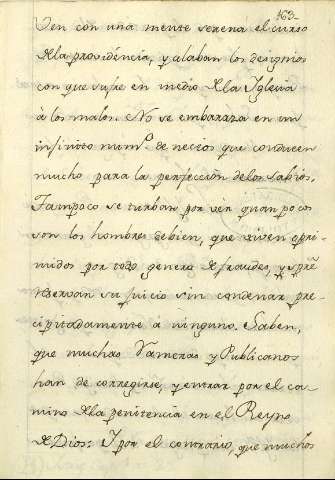 163.
Ven con una mente serena el curso
de la providencia, y alaban los designios
con que sufre en medio de la Iglesia
à los malos. No se embaraza en un
infinito num.º de necios que conducen
mucho para la perfeccion de los sabios.
Tampoco se turban por ver quan pocos
son los hombres de bien, que viven opri-
midos por todo genero de fraudes, y
servan su juicio sin condenar pre-
cipitadamente à ninguno. Saben,
que muchas Rameras y Publicanos
han de corregirse, y entrar por el ca-
mino de la penitencia en el Reyno
de Dios: I por el contrario, que muchos